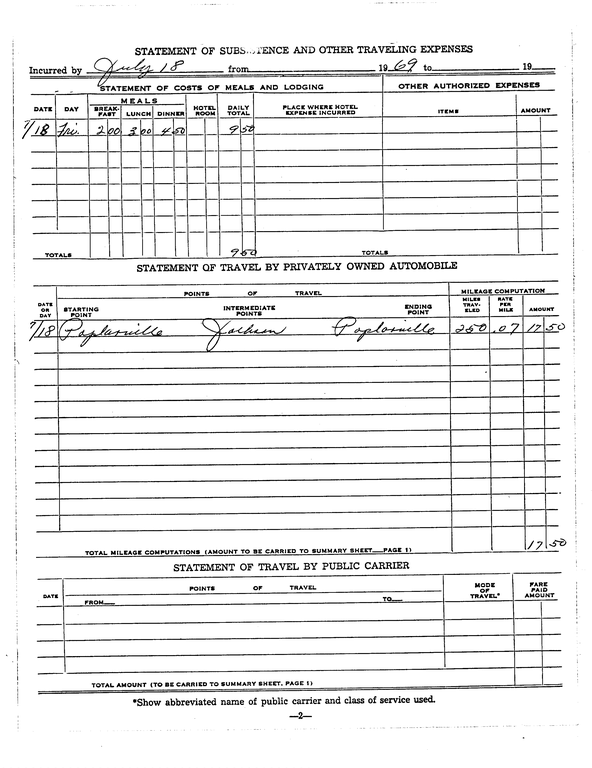 STATEMENT OF SUBS...TENCE AND OTHER TRAVELING EXPENSES
Incurred by July 18 from 1969 to 19
STATEMENT OF COSTS OF MEALS AND LODGING OTHER AUTHORIZED EXPENSES
DATE DAY MEALS BREAK-FAST LUNCH DINNER HOTEL ROOM DAILY TOTAL PLACE WHERE HOTEL EXPENSE INCURRED ITEMS AMOUNT
7/18 Fri. 2 00 3 00 4 50 9 50
TOTALS 9 50 TOTALS
STATEMENT OF TRAVEL BY PRIVATELY OWNED AUTOMOBILE
POINTS OF TRAVEL MILEAGE COMPUTATION
DATE OR DAY STARTING POINT INTERMEDIATE POINTS ENDING POINT MILES TRAV-ELED RATE PER MILE AMOUNT
7/18 Poplarville Jackson Poplarville 250 .07 17 50
TOTAL MILEAGE COMPUTATIONS (AMOUNT TO BE CARRIED TO SUMMARY SHEET—PAGE 1) 17 50
STATEMENT OF TRAVEL BY PUBLIC CARRIER
DATE POINTS OF TRAVEL MODE OF TRAVEL* FARE PAID AMOUNT
FROM— TO—
TOTAL AMOUNT (TO BE CARRIED TO SUMMARY SHEET, PAGE 1)
*Show abbreviated name of public carrier and class of service used.
—2—